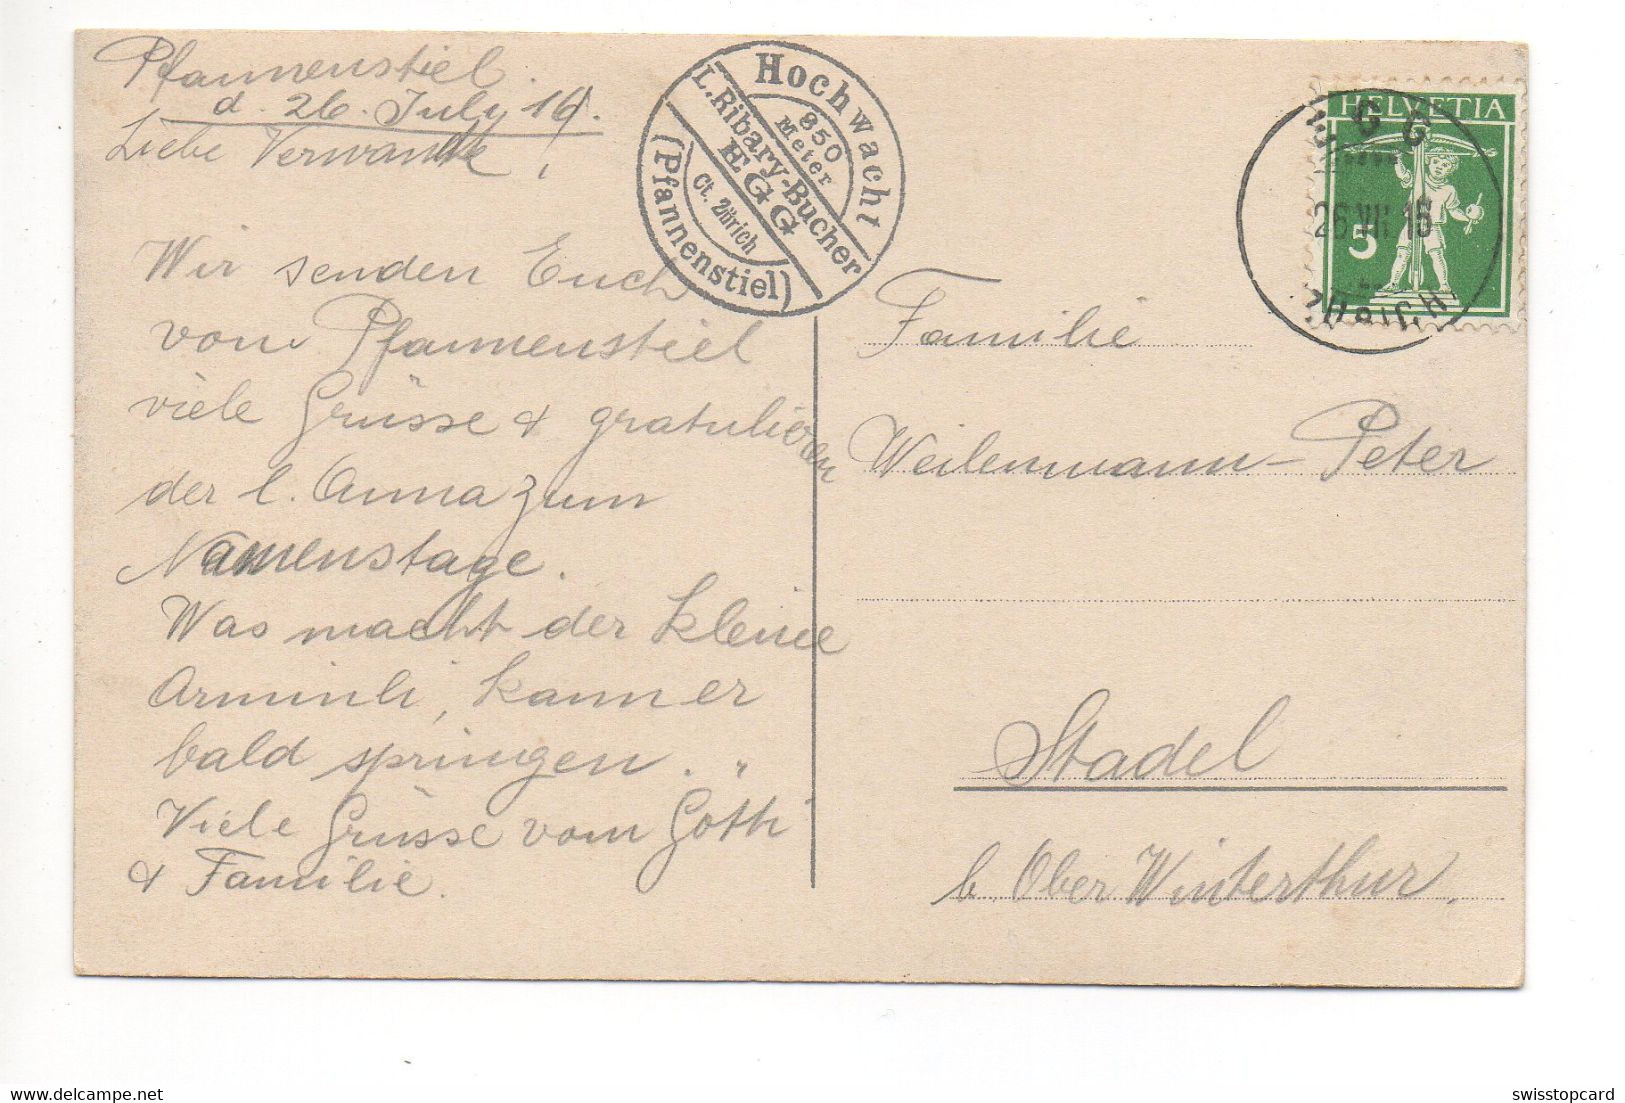 Pfannenstiel.
d. 26. July 16.
Liebe Verwandte!
Wir senden Euch
vom Pfannenstiel
viele Grüsse & gratulieren
der l. Anna zum
Namenstage.
Was macht der kleine
Arminli, kann er
bald springen.
Viele Grüsse vom Götti
& Familie.
Hochwacht
850
Meter
L. Ribary-Bucher
EGG
Ct. Zürich
(Pfannenstiel)
HELVETIA
5
EGG
26.VII.16
ZÜRICH
Familie
Weilenmann-Peter
Stadel
b. Ober Winterthur.
swisstopcard